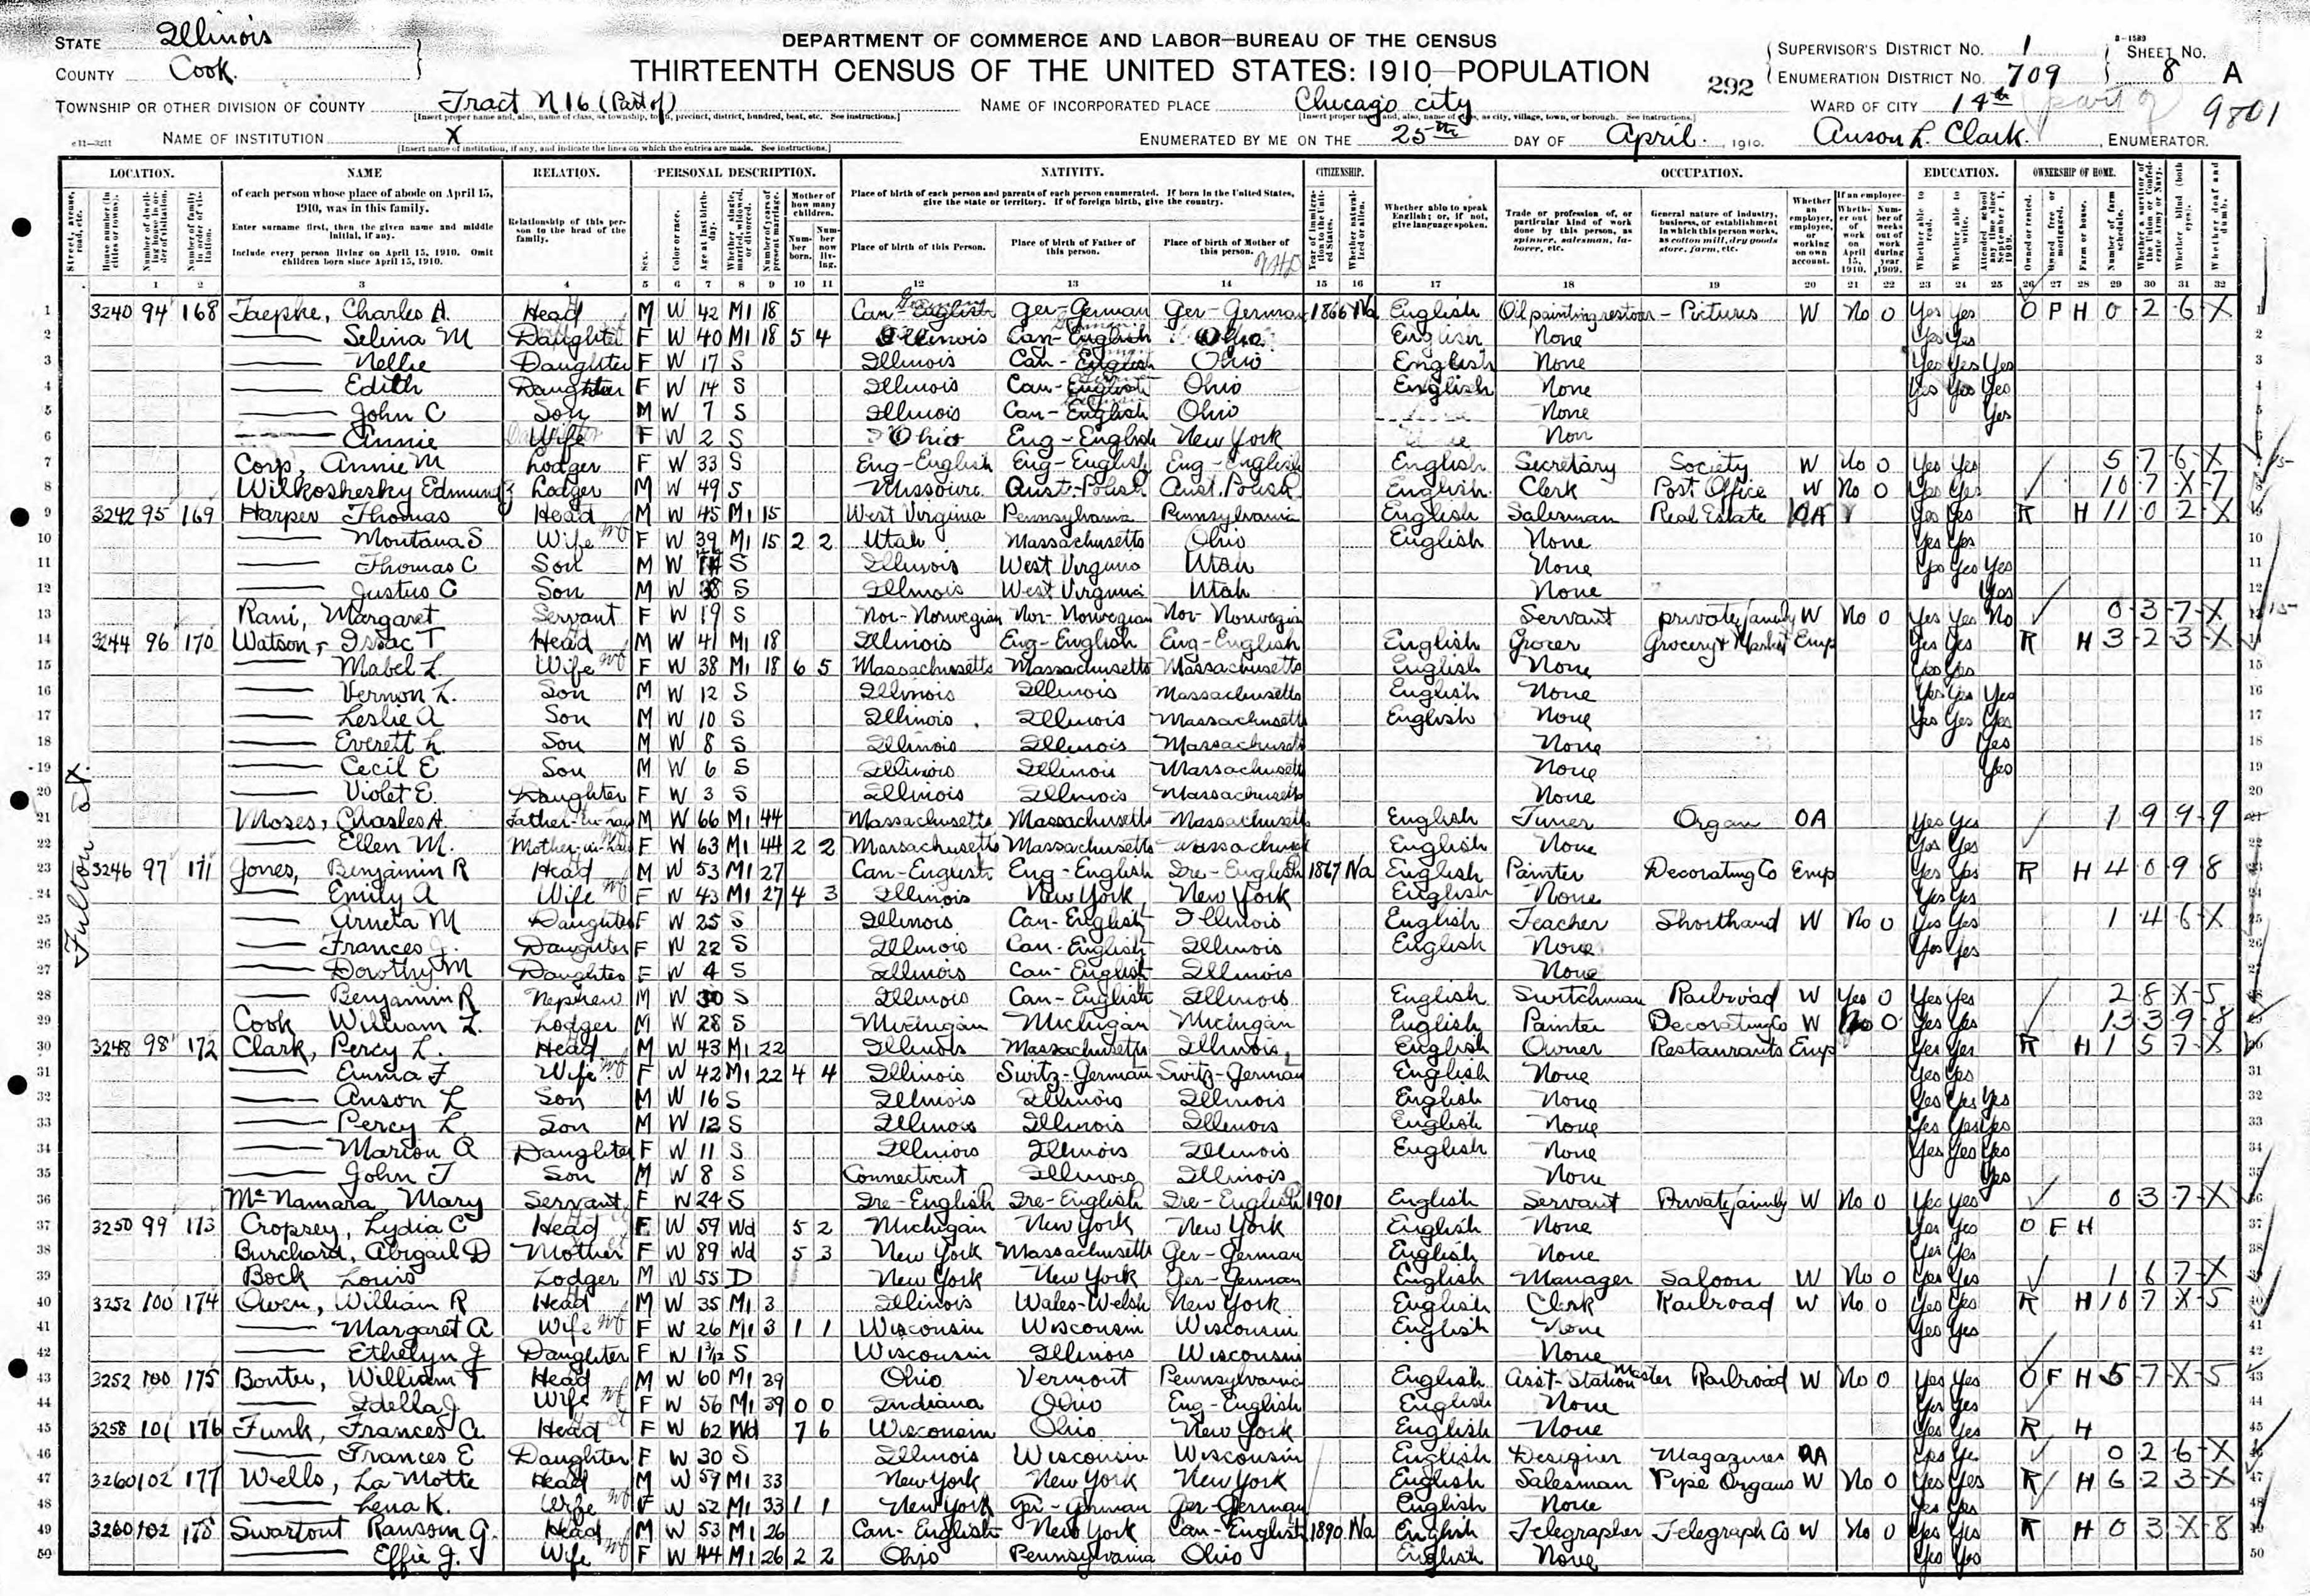 STATE Illinois
COUNTY Cook.
DEPARTMENT OF COMMERCE AND LABOR—BUREAU OF THE CENSUS
THIRTEENTH CENSUS OF THE UNITED STATES: 1910—POPULATION
292
SUPERVISOR'S DISTRICT NO. 1
ENUMERATION DISTRICT NO. 709
8-1589
SHEET NO. 8 A
TOWNSHIP OR OTHER DIVISION OF COUNTY Tract N 16 (Part of)
NAME OF INCORPORATED PLACE Chicago City
WARD OF CITY 14th part of
9801
NAME OF INSTITUTION X
ENUMERATED BY ME ON THE 25th DAY OF April, 1910. Anson L. Clark, ENUMERATOR.
LOCATION. NAME RELATION. PERSONAL DESCRIPTION. NATIVITY. CITIZENSHIP. OCCUPATION. EDUCATION. OWNERSHIP OF HOME.
of each person whose place of abode on April 15, 1910, was in this family.
Enter surname first, then the given name and middle initial, if any.
Include every person living on April 15, 1910. Omit children born since April 15, 1910.
Relationship of this person to the head of the family.
Place of birth of each person and parents of each person enumerated. If born in the United States, give the state or territory. If of foreign birth, give the country.
Place of birth of this Person. Place of birth of Father of this person. Place of birth of Mother of this person.
Whether able to speak English; or, if not, give language spoken.
Trade or profession of, or particular kind of work done by this person, as spinner, salesman, laborer, etc.
General nature of industry, business, or establishment in which this person works, as cotton mill, dry goods store, farm, etc.
1 2 3 4 5 6 7 8 9 10 11 12 13 14 15 16 17 18 19 20 21 22 23 24 25 26 27 28 29 30 31 32
Fulton St.
1 3240 94 168 Jaepke, Charles A. Head M W 42 M1 18 Can-English Ger-German Ger-German 1866 Na English Oil painting restorer Pictures W No 0 Yes Yes O P H 0 2 6 X
2 — Selina M Daughter F W 40 M1 18 5 4 Illinois Can-English Ohio English None Yes Yes
3 — Nellie Daughter F W 17 S Illinois Can-English Ohio English None Yes Yes Yes
4 — Edith Daughter F W 14 S Illinois Can-English Ohio English None Yes Yes Yes
5 — John C Son M W 7 S Illinois Can-English Ohio None Yes
6 — Annie Wife F W 2 S Ohio Eng-English New York Non
7 Corp, Annie M Lodger F W 33 S Eng-English Eng-English Eng-English English Secretary Society W No 0 Yes Yes 5 7 6 X
8 Wilkoshesky Edmund J Lodger M W 49 S Missouri Aust-Polish Aust.Polish English Clerk Post Office W No 0 Yes Yes 10 7 X 7
9 3242 95 169 Harper Thomas Head M W 45 M1 15 West Virginia Pennsylvania Pennsylvania English Salesman Real Estate OA Yes Yes R H 11 0 2 X
10 — Montana S Wife F W 39 M1 15 2 2 Utah Massachusetts Ohio English None Yes Yes
11 — Thomas C Son M W S Illinois West Virginia Utah None Yes Yes Yes
12 — Justus C Son M W 8 S Illinois West Virginia Utah None Yes
13 Rani, Margaret Servant F W 19 S Nor-Norwegian Nor-Norwegian Nor-Norwegian Servant private family W No 0 Yes Yes No 0 3 7 X
14 3244 96 170 Watson, Issac T Head M W 41 M1 18 Illinois Eng-English Eng-English English Grocer Grocery & Market Emp Yes Yes R H 3 2 3 X
15 — Mabel L. Wife F W 38 M1 18 6 5 Massachusetts Massachusetts Massachusetts English None Yes Yes
16 — Vernon L. Son M W 12 S Illinois Illinois Massachusetts English None Yes Yes Yes
17 — Leslie A Son M W 10 S Illinois Illinois Massachusetts English None Yes Yes Yes
18 — Everett L. Son M W 8 S Illinois Illinois Massachusetts None Yes
19 — Cecil E Son M W 6 S Illinois Illinois Massachusetts None Yes
20 — Violet E. Daughter F W 3 S Illinois Illinois Massachusetts None
21 Moses, Charles A. Father-in-law M W 66 M1 44 Massachusetts Massachusetts Massachusetts English Tuner Organ OA Yes Yes 1 9 9 9
22 — Ellen M. Mother-in-law F W 63 M1 44 2 2 Massachusetts Massachusetts Massachusetts English None Yes Yes
23 3246 97 171 Jones, Benjamin R Head M W 53 M1 27 Can-English Eng-English Ire-English 1867 Na English Painter Decorating Co Emp Yes Yes R H 4 0 9 8
24 — Emily A Wife F W 43 M1 27 4 3 Illinois New York New York English None Yes Yes
25 — Arneta M Daughter F W 25 S Illinois Can-English Illinois English Teacher Shorthand W No 0 Yes Yes 1 4 6 X
26 — Frances J. Daughter F W 22 S Illinois Can-English Illinois English None Yes Yes
27 — Dorothy M Daughter F W 4 S Illinois Can-English Illinois None
28 — Benjamin R Nephew M W 30 S Illinois Can-English Illinois English Switchman Railroad W Yes 0 Yes Yes 2 8 X 5
29 Cook William L. Lodger M W 28 S Michigan Michigan Michigan English Painter Decorating Co W No 0 Yes Yes 13 3 9 8
30 3248 98 172 Clark, Percy L. Head M W 43 M1 22 Illinois Massachusetts Illinois English Owner Restaurants Emp Yes Yes R H 1 5 7 X
31 — Emma F Wife F W 42 M1 22 4 4 Illinois Switz-German Switz-German English None Yes Yes
32 — Anson L Son M W 16 S Illinois Illinois Illinois English None Yes Yes Yes
33 — Percy L. Son M W 12 S Illinois Illinois Illinois English None Yes Yes Yes
34 — Marion A Daughter F W 11 S Illinois Illinois Illinois English None Yes Yes Yes
35 — John T Son M W 8 S Connecticut Illinois Illinois None Yes
36 McNamara Mary Servant F W 24 S Ire-English Ire-English Ire-English 1901 English Servant Private family W No 0 Yes Yes 0 3 7 X
37 3250 99 173 Cropsey, Lydia C Head F W 59 Wd 5 2 Michigan New York New York English None Yes Yes O F H
38 Burchard, Abigail D Mother F W 89 Wd 5 3 New York Massachusetts Ger-German English None Yes Yes
39 Bock Louis Lodger M W 55 D New York New York Ger-German English Manager Saloon W No 0 Yes Yes 1 6 7 X
40 3252 100 174 Owen, William R Head M W 35 M1 3 Illinois Wales-Welsh New York English Clerk Railroad W No 0 Yes Yes R H 10 7 X 5
41 — Margaret A Wife F W 26 M1 3 1 1 Wisconsin Wisconsin Wisconsin English None Yes Yes
42 — Ethelyn J Daughter F W 1 3/12 S Wisconsin Illinois Wisconsin None
43 3252 100 175 Bonter, William T Head M W 60 M1 39 Ohio Vermont Pennsylvania English Asist-Station Master Railroad W No 0 Yes Yes O F H 5 7 X 5
44 — Idella J Wife F W 56 M1 39 0 0 Indiana Ohio Eng-English English None Yes Yes
45 3258 101 176 Funk, Frances A. Head F W 62 Wd 7 6 Wisconsin Ohio New York English None Yes Yes R H
46 — Frances E Daughter F W 30 S Illinois Wisconsin Wisconsin English Designer Magazines OA Yes Ye 0 2 6 X
47 3260 102 177 Wells, La Motte Head M W 59 M1 33 New York New York New York English Salesman Pipe Organs W No 0 Yes Yes R H 6 2 3 X
48 — Lena K. Wife F W 52 M1 33 1 1 New York Ger-German Ger-German English None Yes Yes
49 3260 102 178 Swartout Ransom G. Head M W 53 M1 26 Can-English New York Can-English 1890 Na English Telegrapher Telegraph Co W No 0 Yes Yes R H 0 3 X 8
50 — Effie J. Wife F W 44 M1 26 2 2 Ohio Pennsylvania Ohio English None Yes Yes